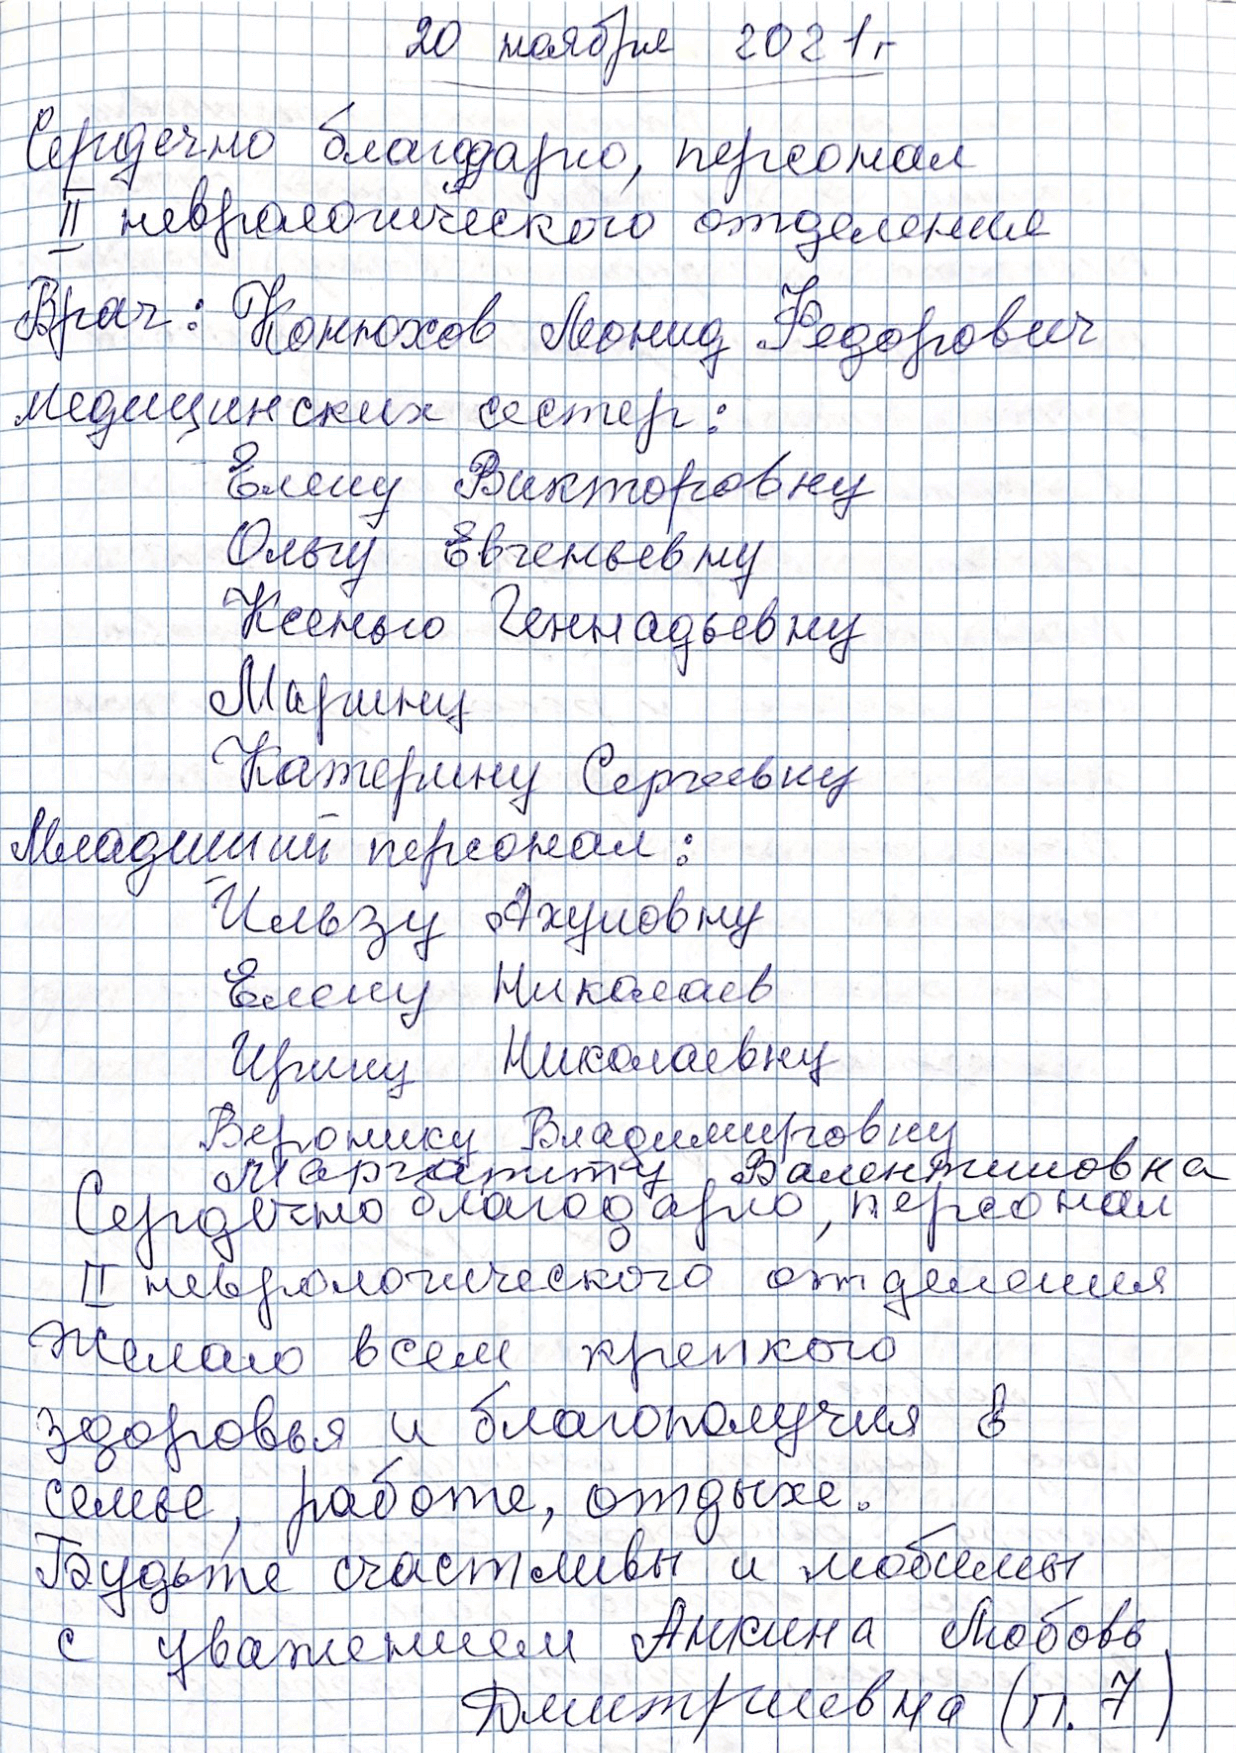 20 ноября 2021г
Сердечно благодарю, персонал
II неврологического отделения
Врач: Конюхов Леонид Федорович
медицинских сестер:
Елену Викторовну
Ольгу Евгеньевну
Ксенью Геннадьевну
Марину
Катерину Сергеевну
Младший персонал:
Ильзу
Елену Николаев
Ирину Николаевну
Веронику Владимировну
Маргариту Валентиновна
Сердечно благодарю, персонал
II неврологического отделения
Желаю всем крепкого
здоровья и благополучия в
семье, работе, отдыхе.
Будьте счастливы и любимы
с уважением Аникина Любовь
Дмитриевна (п. 7)